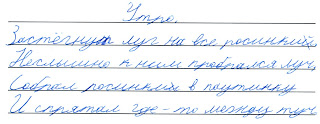 Утро.
Застегнул луг на все росинки
Неслышно к ним пробрался луч,
Собрал росинки в паутинку
И спрятал где-то между туч